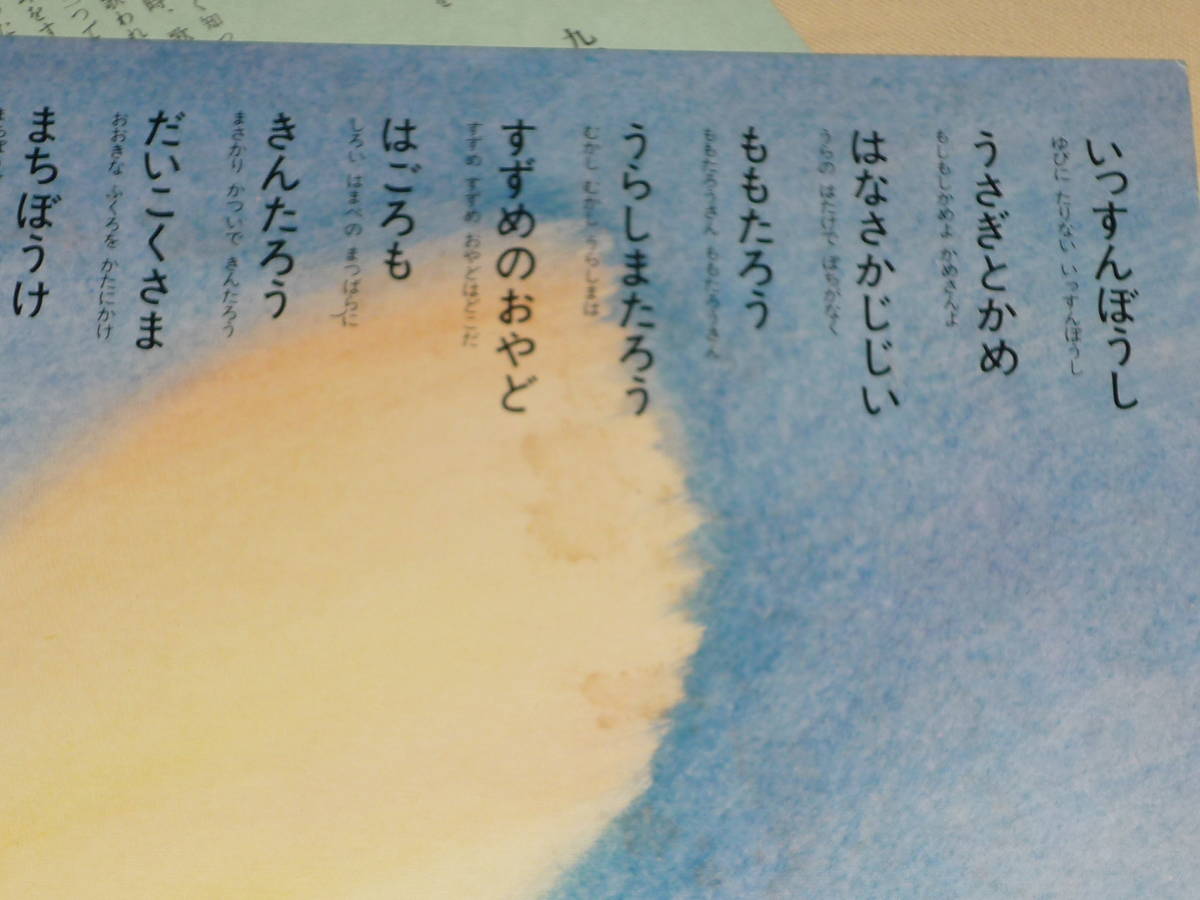 いっすんぼうし
ゆびに たりない いっすんぼうし
うさぎとかめ
もしもしかめよ かめさんよ
はなさかじじい
うらの はたけで ぽちがなく
ももたろう
ももたろうさん ももたろうさん
うらしまたろう
むかし むかし うらしまは
すずめのおやど
すずめ すずめ おやどはどこだ
はごろも
しろい はまべの まつばらに
きんたろう
まさかり かついで きんたろう
だいこくさま
おおきな ふくろを かたにかけ
まちぼうけ
九